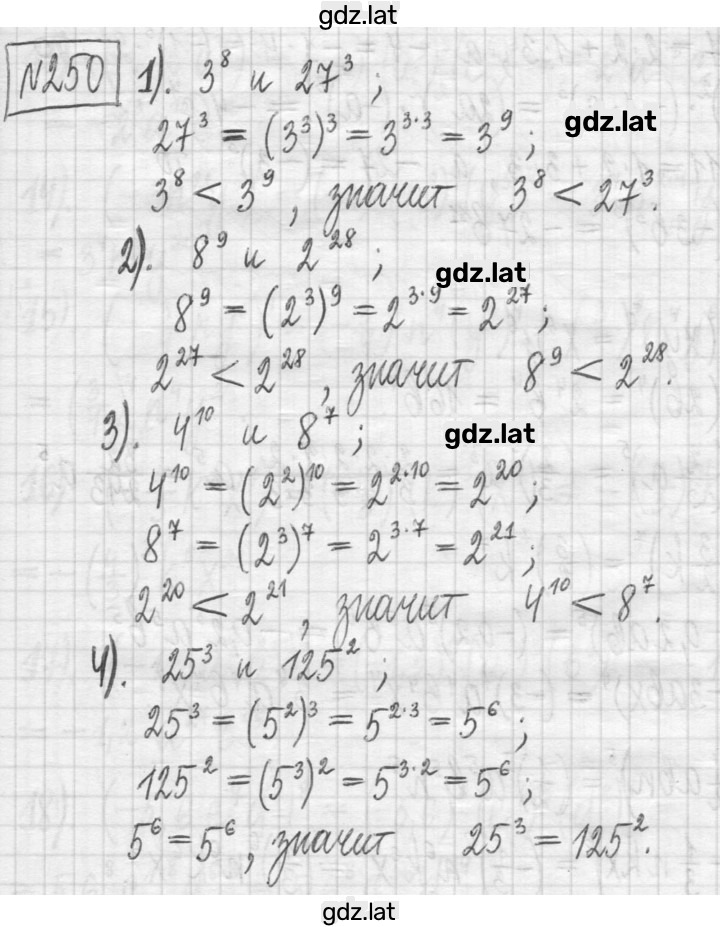 gdz.lat
№250 1). 3⁸ и 27³;
27³ = (3³)³ = 3³·³ = 3⁹; gdz.lat
3⁸ < 3⁹, значит 3⁸ < 27³.
2). 8⁹ и 2²⁸;
gdz.lat
8⁹ = (2³)⁹ = 2³·⁹ = 2²⁷;
2²⁷ < 2²⁸, значит 8⁹ < 2²⁸.
3). 4¹⁰ и 8⁷; gdz.lat
4¹⁰ = (2²)¹⁰ = 2²·¹⁰ = 2²⁰;
8⁷ = (2³)⁷ = 2³·⁷ = 2²¹;
2²⁰ < 2²¹, значит 4¹⁰ < 8⁷.
4). 25³ и 125²;
25³ = (5²)³ = 5²·³ = 5⁶;
125² = (5³)² = 5³·² = 5⁶;
5⁶ = 5⁶, значит 25³ = 125².
gdz.lat